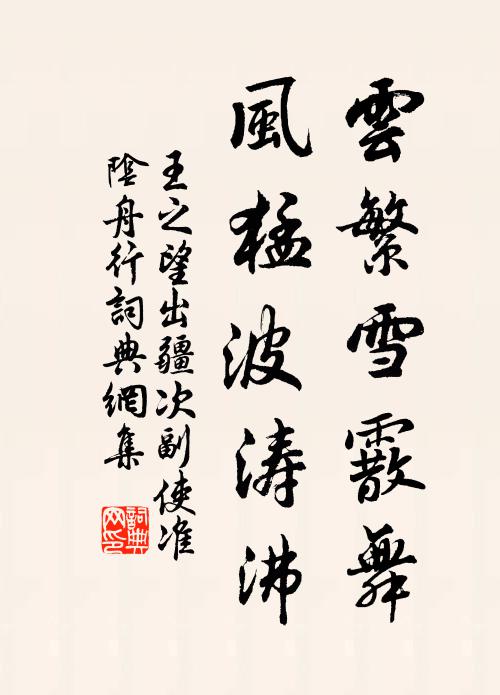 雲繁雪霰舞
風猛波濤沸
王之望出疆次副使准
陰舟行詞典網集
詞典
网印